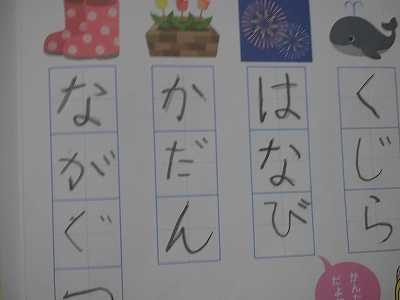 くじら
はなび
かだん
ながぐつ
かんた
だよ